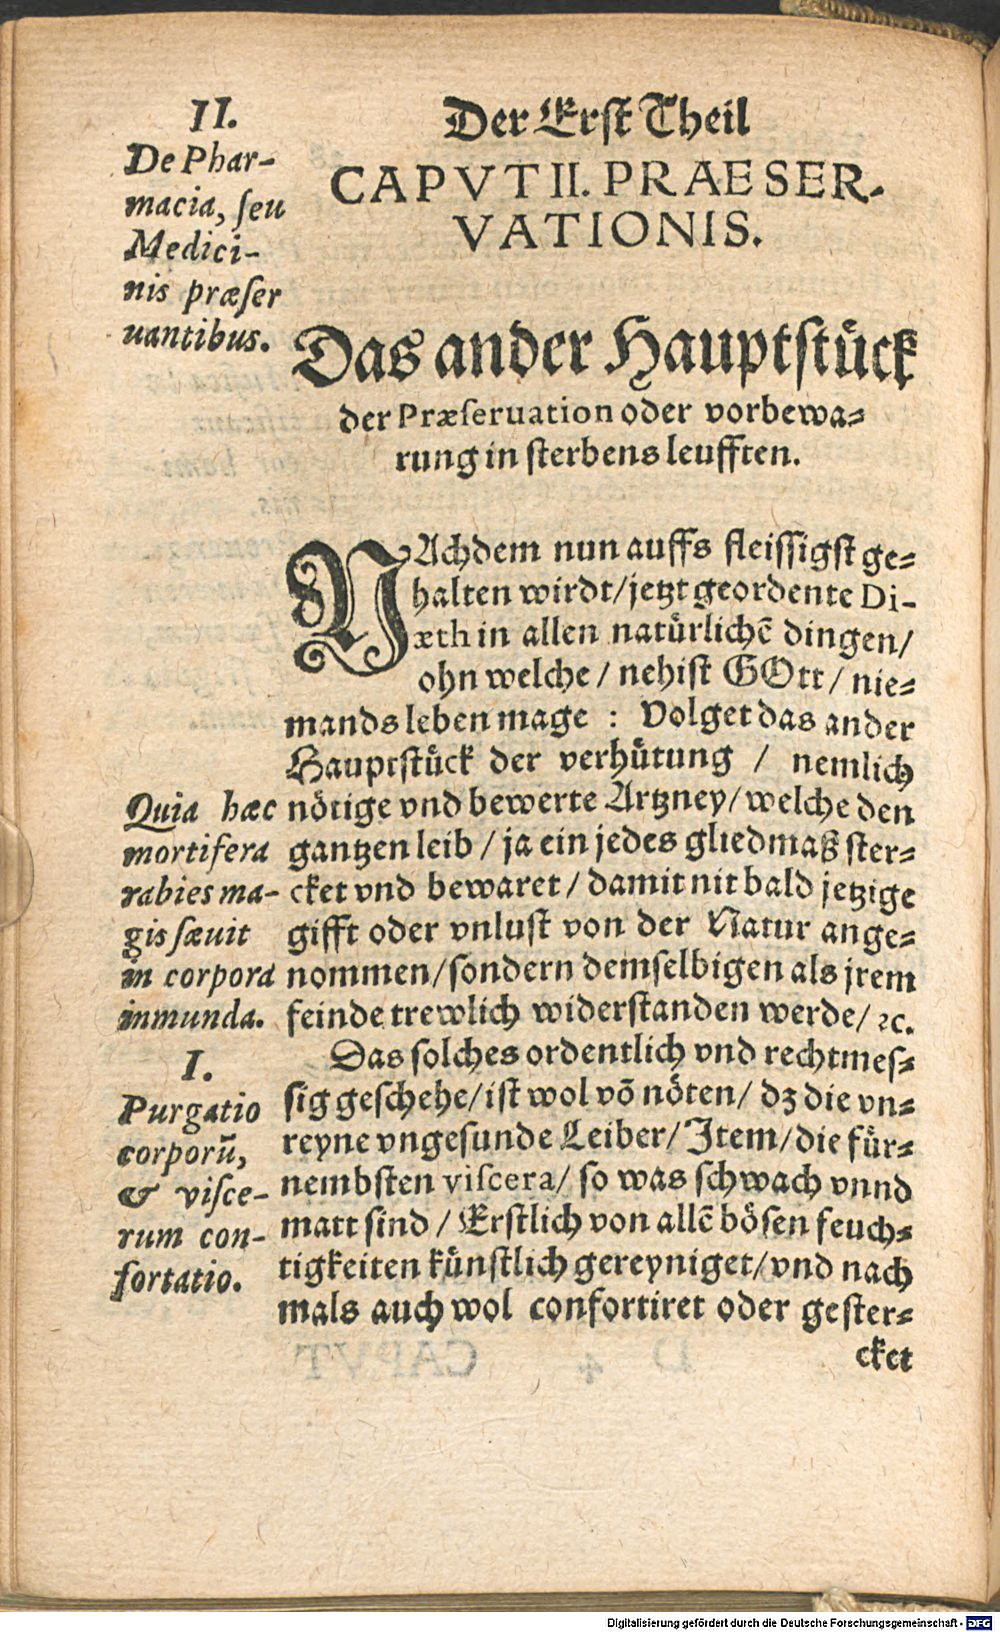 Der Erſt Theil
CAPVT II. PRAESER-
VATIONIS.
II.
De Phar-
macia, ſeu
Medici-
nis præſer
uantibus.
Das ander Hauptſtück
der Præſeruation oder vorbewa-
rung in ſterbens leufften.
NAchdem nun auffs fleiſſigſt ge-
halten wirdt/jetzt geordente Di-
æth in allen natürlichē dingen/
ohn welche / nehiſt GOtt / nie-
mands leben mage : Volget das ander
Hauptſtück der verhütung / nemlich
nötige vnd bewerte Artzney/welche den
gantzen leib / ja ein jedes gliedmaß ſter-
cket vnd bewaret / damit nit bald jetzige
gifft oder vnluſt von der Natur ange-
nommen/ſondern demſelbigen als jrem
feinde trewlich widerſtanden werde/ ꝛc.
Quia hæc
mortifera
rabies ma-
gis ſæuit
in corpora
inmunda.
Das ſolches ordentlich vnd rechtmeſ-
ſig geſchehe/iſt wol vō nöten/ dz die vn-
reyne vngeſunde Leiber/Item/die für-
nembſten viſcera/ ſo was ſchwach vnnd
matt ſind / Erſtlich von allē böſen feuch-
tigkeiten künſtlich gereyniget/vnd nach
mals auch wol confortiret oder geſter-
I.
Purgatio
corporū,
& viſce-
rum con-
fortatio.
cket
Digitalisierung gefördert durch die Deutsche Forschungsgemeinschaft - DFG